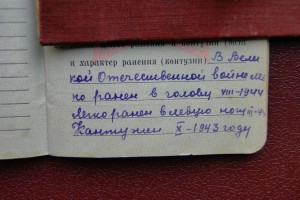 ранения и контузии
и характер ранения (контузии) В Вели
кой Отечественной войне ле
ко ранен в голову VIII-1944
Легко ранен в левую ногу III-4
Контузии X-1943 году